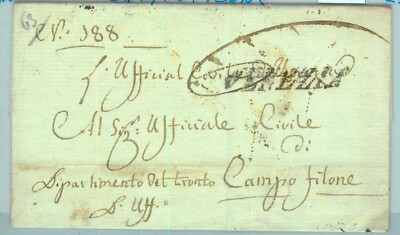 63
N.º 188.
L'Ufficial Civile
VENEZIA
Al Sig.r Ufficiale Civile
di
Dipartimento del tronto Campo filone
D'Uff.